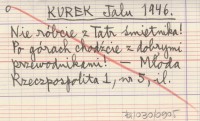 KUREK Jalu 1946.
Nie róbcie z Tatr śmietnika!
Po górach chodźcie z dobrymi
przewodnikami! — Młoda
Rzeczpospolita 1, nr 5, il.